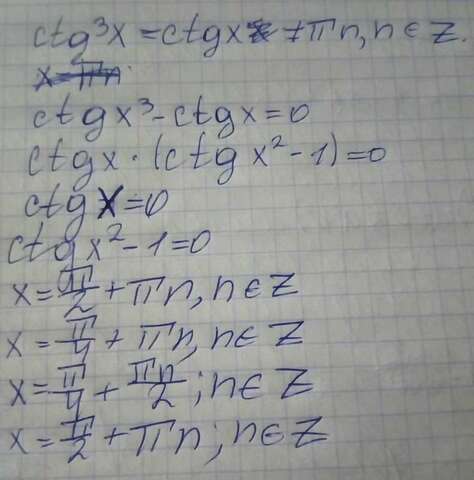 ctg³x = ctgx ≠ πn, n ∈ Z.
x = πn
ctgx³ - ctgx = 0
ctgx · (ctgx² - 1) = 0
ctgx = 0
ctgx² - 1 = 0
x = π/2 + πn, n ∈ Z
x = π/4 + πn, n ∈ Z
x = π/4 + πn/2; n ∈ Z
x = π/2 + πn; n ∈ Z